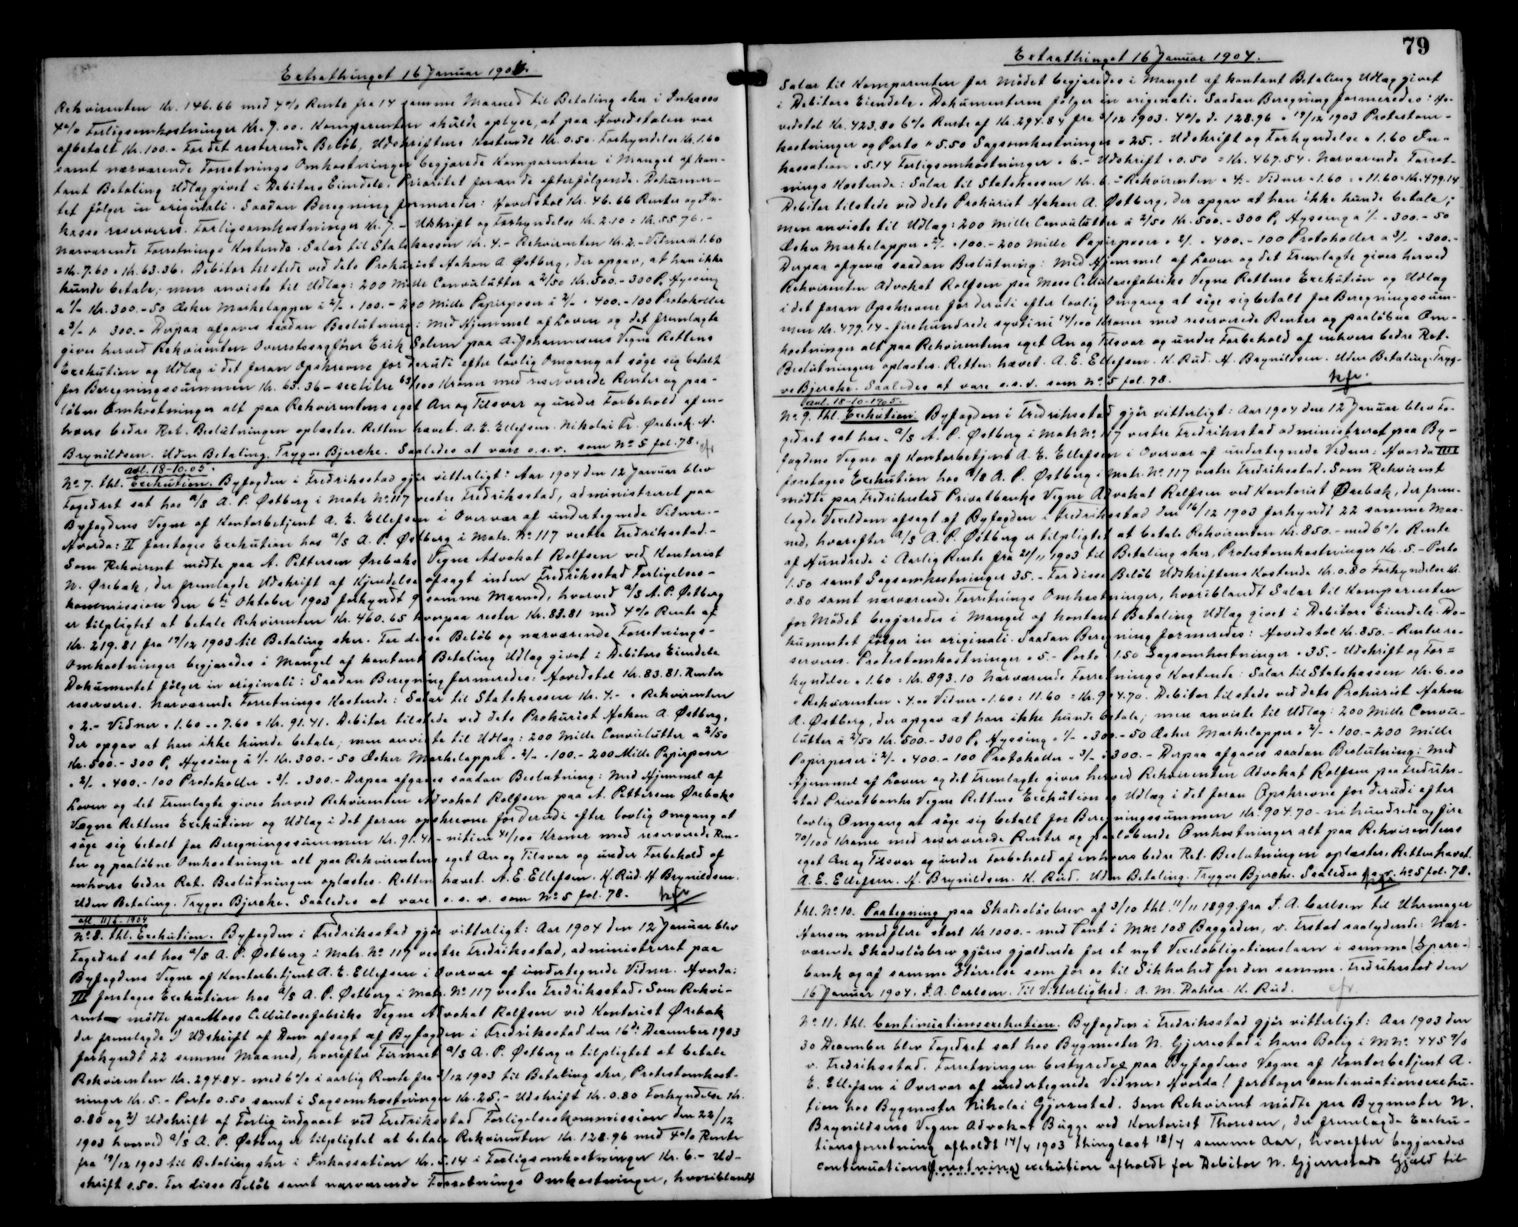 Extrathinget 16 Januar 1904.
Rekvirenten Kr. 146.66 med 4% Rente fra 14 samme Maaned til Betaling sker i Inkasso
4% Forligsomkostninger Kr. 7.00. Komparenten skulde oplyse, at paa Hovedstolen var
afbetalt Kr. 100.- For det resterende Beløb, Udskriftens Kostende Kr. 0.50. Forkyndelse Kr. 1.60
samt nærværende Forretnings Omkostninger begjærede Komparenten i Mangel af kon-
tant Betaling Udlæg givet i Debitors Eiendele. Prioritet foran de efterfølgende. Dokumen-
tet følger in originali. Saadan Beregning formeredes: Hovedstol Kr. 46.66 Renter og In-
kasso reserveres. Forligsomkostninger Kr. 7.- Udskrift og Forkyndelse Kr. 2.10 = Kr. 55.76.-
nærværende Forretnings Kostende. Salær til Statskassen Kr. 4.- Rekvirenten Kr. 2.- Vidner 1.60
= Kr. 7.60 = Kr. 63.36. Debitor tilstede ved dets Prokurist Hakon A Østberg, der opgav, at han ikke
kunde betale; men anviste til Udlæg: 200 Mille Convolutter a 2/50 Kr. 500.- 300 P. Hyssing
a 1/- Kr. 300.- 50 Æsker Markelapper a 2/- " 100.- 200 Mille Papirposer a 2/- " 400.- 100 Protokoller
a 3/- " 300.- Derpaa afgaves saadan Beslutning: Med Hjemmel af Loven og det fremlagte
gives herved Rekvirenten Overretssagfører Erik Solem paa A. Johannesens Vegne Rettens
Exekution og Udlæg i det foran Opskrevne for derudi efter lovlig Omgang at søge sig betalt
for Beregningssummen Kr. 63.36 - sextitre 36/100 Kroner med reserverede Renter og paa-
løbne Omkostninger alt paa Rekvirentens eget An og Tilsvar og under Forbehold af en-
hvers bedre Ret. Beslutningen oplæstes. Retten hævet. A. E. Ellefsen. Nikolai Fr. Ørebeck. H.
Brynildsen. Uden Betaling. Trygve Bjerche. Saaledes at være o.s.v. som No 5 fol. 78.
avl. 18-10-05.
No 7. thl. Exekution. Byfogden i Fredriksstad gjør vitterligt: Aar 1904 den 12 Januar blev
Fogedret sat hos A/S A. P. Østberg i Matr. No 117 vestre Fredriksstad, administreret paa
Byfogdens Vegne af Kontorbetjent A. E. Ellefsen i Overvær af undertegnede Vidner.-
Hvorda: II foretoges Exekution hos A/S A. P. Østberg i Matr. No 117 vestre Fredriksstad.-
Som Rekvirent mødte paa A. Pettersen Ørebæks Vegne Advokat Rolfsen ved Kontorist
N. Ørebæk, der fremlagde Udskrift af Kjendelse afsagt inden Fredriksstad Forligelses-
kommission den 6te Oktober 1903 forkyndt 9 samme Maaned, hvorved A/S A. P. Østberg
er tilpligtet at betale Rekvirenten Kr. 460.65 hvorpaa rester Kr. 83.81 med 4% Rente af
Kr. 219.81 fra 17/12 1903 til Betaling sker. For disse Beløb og nærværende Forretnings-
Omkostninger begjæredes i Mangel af kontant Betaling Udlæg givet i Debitors Eiendele
Dokumentet følger in originali: Saadan Beregning formeredes: Hovedstol Kr. 83.81. Renter
reserveres. Nærværende Forretnings Kostende: Salær til Statskassen Kr. 4.- " Rekvirenten
" 2.- Vidner " 1.60 = 7.60 = Kr. 91.41. Debitor tilstede ved dets Prokurist Hakon A. Østberg,
der opgav at han ikke kunde betale; men anviste til Udlæg: 200 Mille Convolutter a 2/50
Kr. 500.- 300 P. Hyssing a 1/- Kr. 300.- 50 Æsker Markelapper " 2/- " 100.- 200 Mille Papirposer
" 2/- " 400.- 100 Protokoller " 3/- " 300.- Derpaa afgaves saadan Beslutning: Med Hjemmel af
Loven og det Fremlagte gives herved Rekvirenten Advokat Rolfsen paa A. Pettersen Ørebæks
Vegne Rettens Exekution og Udlæg i det foran opskrevne for derudi efter lovlig Omgang at
søge sig betalt for Beregningssummen Kr. 91.41 - nitien 41/100 Kroner med reserverede Ren-
ter og paaløbne Omkostninger alt paa Rekvirentens eget An og Tilsvar og under Forbehold af
enhvers bedre Ret. Beslutningen oplæstes. Retten hævet. A. E. Ellefsen. K. Rud. H. Brynildsen.
Uden Betaling. Trygve Bjerche. Saaledes at være o.s.v. som No 5 fol. 78.
afl. 11/6-1904
No 8. thl. Exekution. Byfogden i Fredriksstad gjør vitterligt: Aar 1904 den 12 Januar blev
Fogedret sat hos A/S A. P. Østberg i Matr. No 117 vestre Fredriksstad, administreret paa
Byfogdens Vegne af Kontorbetjent A. E. Ellefsen i Overvær af undertegnede Vidner. Hvorda:
III foretoges Exekution hos A/S A. P. Østberg i Matr. No 117 vestre Fredriksstad. Som Rekvi-
rent mødte paa Moss Cellulosefabriks Vegne Advokat Rolfsen ved Kontorist Ørebæk
der fremlagde 1) Udskrift af Dom afsagt af Byfogden i Fredriksstad den 16de December 1903
forkyndt 22 samme Maaned, hvorefter Firmaet A/S A. P. Østberg er tilpligtet at betale
Rekvirenten Kr. 294.84 - med 6% i aarlig Rente fra 5/12 1903 til Betaling sker, Protestomkost-
ninger Kr. 5.- Porto 0.50 samt i Sagsomkostninger Kr. 25.- Udskrift Kr. 0.80 Forkyndelse Kr.
0.80 og 2) Udskrift af Forlig indgaaet ved Fredriksstad Forligelseskommission den 22/12
1903 hvorved A/S A. P. Østberg er tilpligtet at betale Rekvirenten Kr. 128.96 med 4% Rente
fra 19/12 1903 til Betaling sker i Inkassation Kr. 5.14 i Forligsomkostninger Kr. 6.- Ud-
skrift 0.50. For disse Beløb samt nærværende Forretnings Omkostninger, hvoriblandt
79
Extrathinget 16 Januar 1904.
Salær til Komparenten for Mødet begjæredes i Mangel af kontant Betaling Udlæg givet
i Debitors Eiendele. Dokumenterne følger in originali. Saadan Beregning formeredes: Ho-
vedstol Kr. 423.80 6% Rente af Kr. 294.84 fra 5/12 1903. 4% do. 128.96 " 19/12 1903 Protestom-
kostninger og Porto " 5.50 Sagsomkostninger " 25.- Udskrift og Forkyndelse " 1.60 In-
kassation " 5.14 Forligsomkostninger " 6.- Udskrift " 0.50 = Kr. 467.54. Nærværende Forret-
nings Kostende: Salær til Statskassen Kr. 6.- Rekvirenten " 4.- Vidner " 1.60 = 11.60 = Kr. 479.14
Debitor tilstede ved dets Prokurist Hakon A. Østberg, der opgav at han ikke kunde betale;
men anviste til Udlæg: 200 Mille Convolutter a 2/50 Kr. 500.- 300 P. Hyssing a 1/- " 300.- 50
Æsker Markelapper " 2/- " 100.- 200 Mille Papirposer " 2/- " 400.- 100 Protokoller a 3/- " 300.-
Derpaa afgaves saadan Beslutning: Med Hjemmel af Loven og det Fremlagte gives herved
Rekvirenten Advokat Rolfsen paa Moss Cellulosefabriks Vegne Rettens Exekution og Udlæg
i det foran Opskrevne for derudi efter lovlig Omgang at søge sig betalt for Beregningssum-
men Kr. 479.14 - firehundrede sytti ni 14/100 Kroner med reserverede Renter og paaløbne Om-
kostninger alt paa Rekvirentens eget An og Tilsvar og under Forbehold af enhvers bedre Ret.
Beslutningen oplæstes. Retten hævet. A. E. Ellefsen. K. Rud. H. Brynildsen. Uden Betaling. Tryg-
ve Bjerche. Saaledes at være o.s.v. som No 5 fol. 78.
avl. 18-10-1905.
No 9. thl. Exekution. Byfogden i Fredriksstad gjør vitterligt: Aar 1904 den 12 Januar blev Fo-
gedret sat hos A/S A. P. Østberg i Matr No 117 vestre Fredriksstad administreret paa By-
fogdens Vegne af Kontorbetjent A. E. Ellefsen i Overvær af undertegnede Vidner. Hvorda IIII
foretoges Exekution hos A/S A. P. Østberg i Matr. No 117 vestre Fredriksstad. Som Rekvirent
mødte paa Fredriksstad Privatbanks Vegne Advokat Rolfsen ved Kontorist Ørebæk, der frem-
lagde Vexeldom afsagt af Byfogden i Fredriksstad den 16/12 1903 forkyndt 22 samme Maa-
ned, hvorefter A/S A. P. Østberg er tilpligtet at betale Rekvirenten Kr. 850.- med 6% Rente
af Hundrede i Aarlig Rente fra 21/11 1903 til Betaling sker, Protestomkostninger Kr. 5.- Porto
1.50 samt Sagsomkostninger 35.- For disse Beløb Udskriftens Kostende Kr. 0.80 Forkyndelse Kr.
0.80 samt nærværende Forretnings Omkostninger, hvoriblandt Salær til Komparenten
for Mødet begjæredes i Mangel af kontant Betaling Udlæg givet i Debitors Eiendele. Do-
kumentet følger in originali. Saadan Beregning formeredes: Hovedstol Kr. 850.- Renter re-
serveres. Protestomkostninger " 5.- Porto 1.50 Sagsomkostninger " 35.- Udskrift og For=
kyndelse " 1.60 = Kr. 893.10 Nærværende Forretnings Kostende: Salær til Statskassen Kr. 6.00
" Rekvirenten " 4.00 Vidner " 1.60 = 11.60 = Kr. 904.70. Debitor tilstede ved dets Prokurist Hakon
A. Østberg, der opgav at han ikke kunde betale; men anviste til Udlæg: 200 Mille Convo-
lutter a 2/50 Kr. 500.- 300 P. Hyssing " 1/- " 300.- 50 Æsker Markelapper " 2/- " 100.- 200 Mille
Papirposer i 2/- " 400.- 100 Protokoller " 3/- " 300.- Derpaa afgaves saadan Beslutning: Med
Hjemmel af Loven og det Fremlagte gives herved Rekvirenten Advokat Rolfsen paa Fredriks-
stad Privatbanks Vegne Rettens Exekution og Udlæg i det foran Opskrevne for derudi efter
lovlig Omgang at søge sig betalt for Beregningssummen Kr. 904.70 - ni hundrede og fire
70/100 Kroner med reserverede Renter og paaløbende Omkostninger alt paa Rekvirentens
eget An og Tilsvar og under Forbehold af enhvers bedre Ret. Beslutningen oplæstes. Retten hævet.
A. E. Ellefsen. H. Brynildsen. K. Rud. Uden Betaling. Trygve Bjerche. Saaledes No 5 fol. 78.
thl. No 10. Paategning paa Skadesløsbrev af 3/10 thl. 11/11 1899 fra F. A. Carlsen til Uhrmager
Hansen med flere stort Kr 1000.- med Pant i M No 108 Baggaden, v. Frstad saalydende: Nær-
værende Skadesløsbrev gjøres gjældende for et nyt Vexelobligationslaan i samme Spare-
bank og af samme Størrelse som før og til Sikkerhed for den samme. Fredriksstad den
16 Januar 1904. F. A. Carlsen. Til Vitterlighed: A. M. Dahler. K. Rud.
No 11. thl. Continuationsexekution. Byfogden i Fredriksstad gjør vitterligt: Aar 1903 den
30 December blev Fogedret sat hos Bygmester N. Gjerrestad i hans Bolig i M No. 445
v. Fredriksstad. Forretningen bestyredes paa Byfogdens Vegne af Kontorbetjent A.
E. Ellefsen i Overvær af undertegnede Vidner. Hvorda! foretoges continuationsexeku-
tion hos Bygmester Nikolai Gjerrestad. Som Rekvirent mødte paa Bygmester N.
Brynildsens Vegne Advokat Bugge ved Kontorist Thoresen, der fremlagde Exeku-
tionsforretning afholdt 14/4 1903 thinglæst 18/4 samme Aar, hvorefter begjæredes
continuations exekution afholdt for Debitor N. Gjerrestads Gjæld til